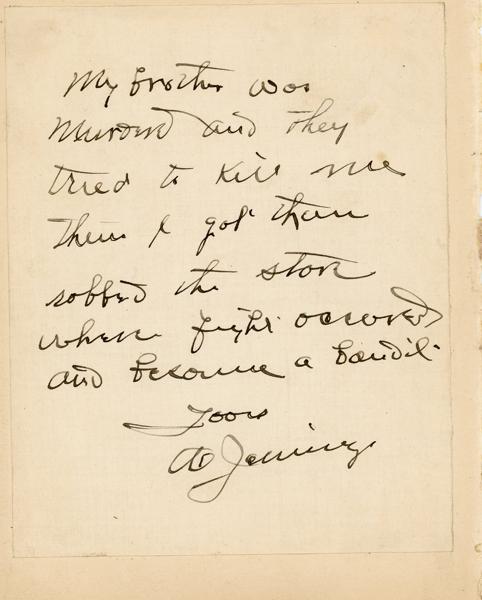 My brother was
Murderd and they
tried to Kill me
then I got them
robbed the store
where fight occured
and became a bandit.
Yours
Al Jennings